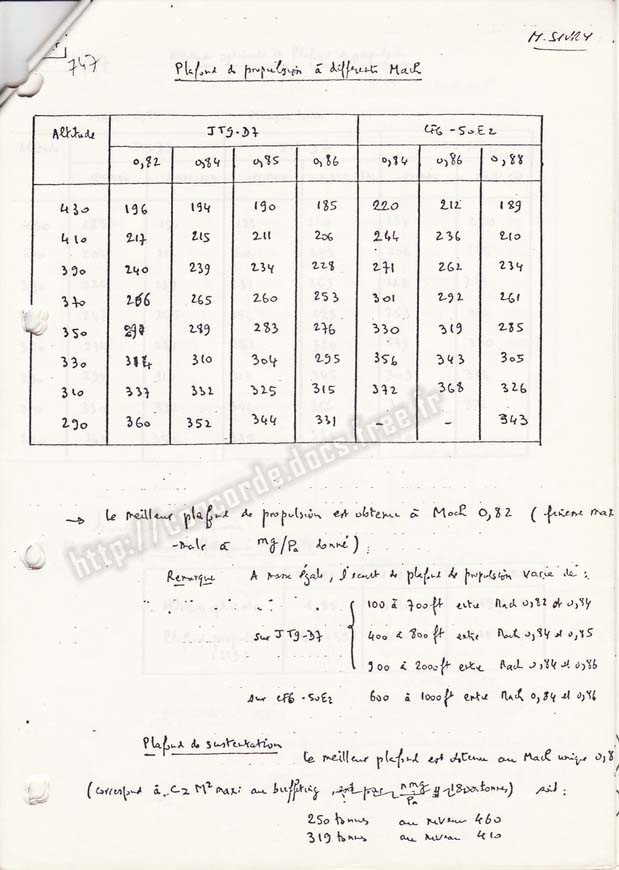 M. SIVRY
747
Plafond de propulsion à différents Mach
Altitude JT9-D7 CF6-50E2
0,82 0,84 0,85 0,86 0,84 0,86 0,88
430 196 194 190 185 220 212 189
410 217 215 211 206 244 236 210
390 240 239 234 228 271 262 234
370 266 265 260 253 301 292 261
350 297 289 283 276 330 319 285
330 314 310 304 295 356 343 305
310 337 332 325 315 372 368 326
290 360 352 344 331 - - 343
→ Le meilleur plafond de propulsion est obtenu à Mach 0,82 (finesse maxi
-male à mg/Pa donné) ;
Remarque A masse égale, l'écart de plafond de propulsion varie de :
100 à 700ft entre Mach 0,82 et 0,84
sur JT9-D7 400 à 800ft entre Mach 0,84 et 0,85
900 à 2000ft entre Mach 0,84 et 0,86
sur CF6-50E2 600 à 1000ft entre Mach 0,84 et 0,86
Plafond de sustentation
Le meilleur plafond est obtenu au Mach unique 0,8
(correspond à Cz M² maxi au buffeting nmg/Pa tonnes) soit :
250 tonnes au niveau 460
319 tonnes au niveau 410
http://concorde.docs.free.fr